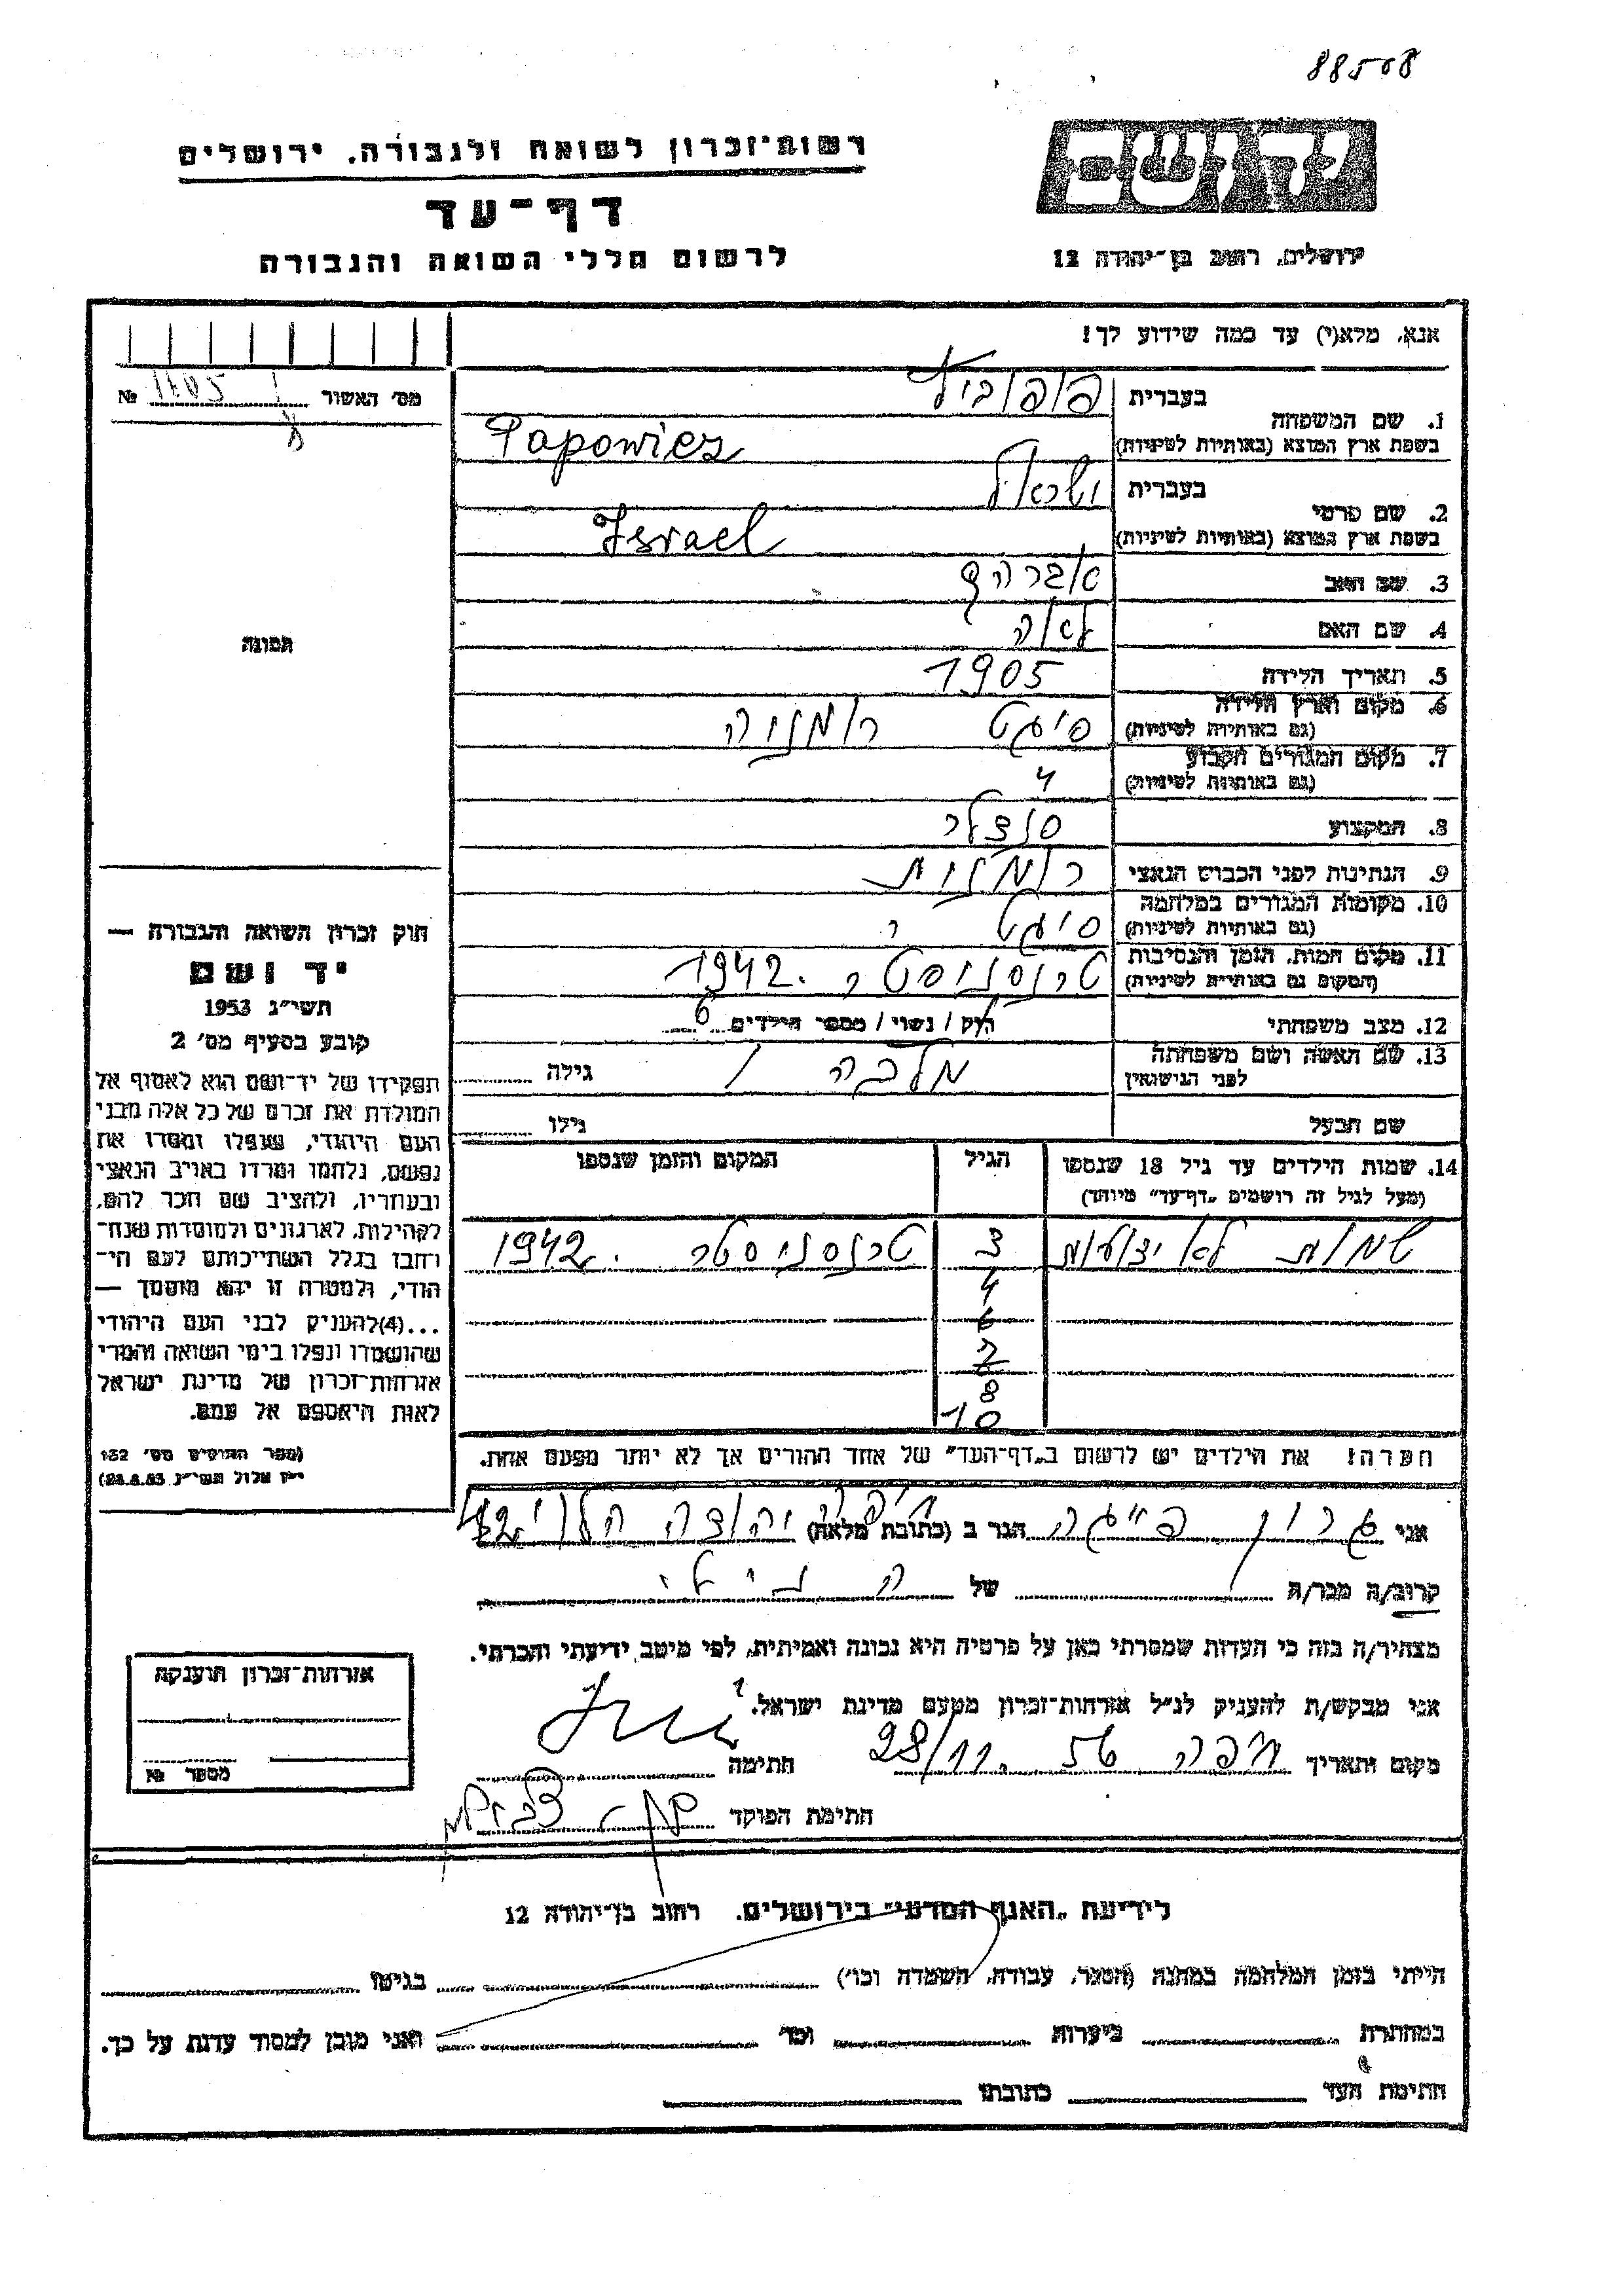 88508
רשות־זכרון לשואה ולגבורה. ירושלים
דף־עד
לרשום חללי השואה והגבורה
יד ושם
ירושלים, רחוב בן־יהודה 12
אנא, מלא(י) עד כמה שידוע לך!
מס׳ האשור № 
1. שם המשפחה
בעברית
בשפת ארץ המוצא (באותיות לטיניות) Papowicz
2. שם פרטי
בעברית ישראל
בשפת ארץ המוצא (באותיות לטיניות) Israel
3. שם האב אברהם
4. שם האם לאה
5. תאריך הלידה 1905
6. מקום וארץ הלידה
(גם באותיות לטיניות) סיגט רומניה
7. מקום המגורים הקבוע
(גם באותיות לטיניות) "
8. המקצוע סנדלר
9. הנתינות לפני הכבוש הנאצי רומנית
10. מקומות המגורים במלחמה
(גם באותיות לטיניות) סיגט ר
11. מקום המות, הזמן והנסיבות
(המקום גם באותיות לטיניות) טרנסניסטר. 1942
12. מצב משפחתי רוק / נשוי / מספר הילדים 6
13. שם האשה ושם משפחתה
לפני הנישואין מלכה גילה
שם הבעל גילו
14. שמות הילדים עד גיל 18 שנספו
(מעל לגיל זה רושמים „דף־עד” מיוחד)
הגיל
המקום והזמן שנספו
שמות לא ידועות 3 טרנסניסטר. 1942
4
6
7
8
10
הערה! את הילדים יש לרשום ב„דף־העד” של אחד ההורים אך לא יותר מפעם אחת.
תמונה
חוק זכרון השואה והגבורה —
יד ושם
תשי״ג 1953
קובע בסעיף מס׳ 2
תפקידו של יד־ושם הוא לאסוף אל
המולדת את זכרם של כל אלה מבני
העם היהודי, שנפלו ומסרו את
נפשם, נלחמו ומרדו באויב הנאצי
ובעוזריו, ולהציב שם וזכר להם,
לקהילות, לארגונים ולמוסדות שנח־
רחבו בגלל השתייכותם לעם הי־
הודי, ולמטרה זו יהא מוסמך —
...(4) להעניק לבני העם היהודי
שהושמדו ונפלו בימי השואה והמרי
אזרחות־זכרון של מדינת ישראל
לאות היאספם אל עמם.
(ספר החוקים מס׳ 132
י״ז אלול תשי״ג 28.8.53)
אני הגר ב (כתובת מלאה) חיפה יהודה הלוי 42
קרוב/ה מכר/ה של
מצהיר/ה בזה כי העדות שמסרתי כאן על פרטיה היא נכונה ואמיתית, לפי מיטב ידיעתי והכרתי.
אני מבקש/ת להעניק לנ״ל אזרחות־זכרון מטעם מדינת ישראל.
מקום ותאריך חיפה 28/11. 56 חתימה
חתימת הפוקד
אזרחות־זכרון הוענקה
מספר №
לידיעת „האגף המדעי” בירושלים. רחוב בן־יהודה 12
הייתי בזמן המלחמה במחנה (הסגר, עבודה, השמדה וכו׳) בגיטו
במחתרת ביערות וכו׳ ואני מוכן למסור עדות על כך.
חתימת העד כתובתו